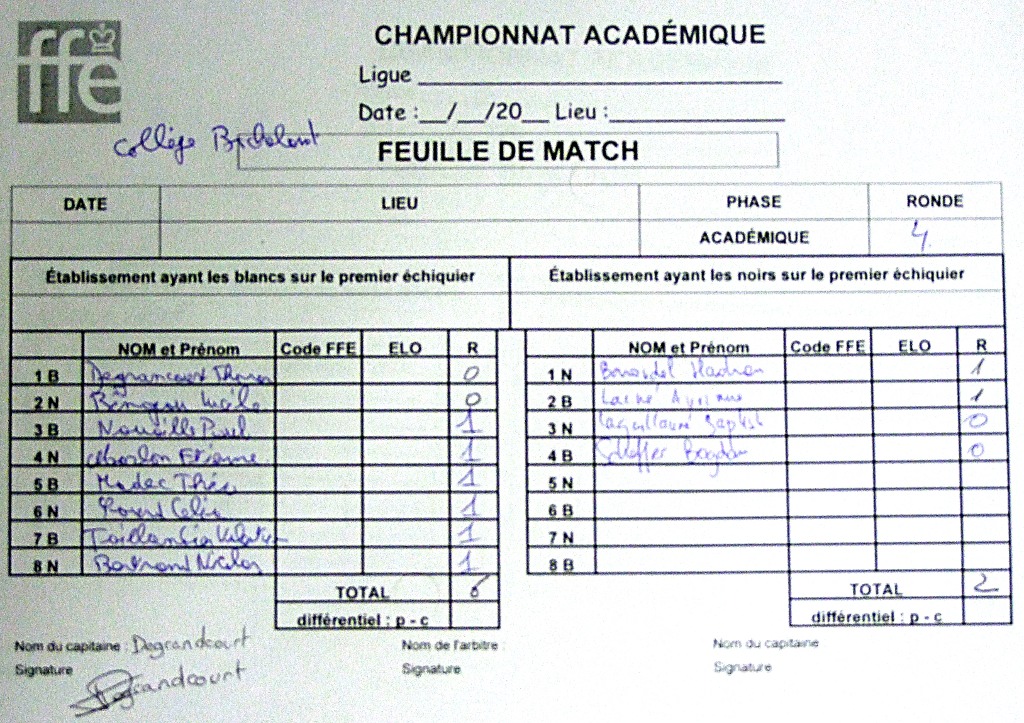 ffe
CHAMPIONNAT ACADÉMIQUE
Ligue
Date :__/__/20__ Lieu :
Collège
FEUILLE DE MATCH
DATE LIEU PHASE RONDE
ACADÉMIQUE 4
Établissement ayant les blancs sur le premier échiquier Établissement ayant les noirs sur le premier échiquier
NOM et Prénom Code FFE ELO R NOM et Prénom Code FFE ELO R
1 B Degrancourt Thomas 0 1 N 1
2 N 0 2 B 1
3 B Paul 1 3 N 0
4 N Etienne 1 4 B Scheffer Bogdan 0
5 B Madec Théo 1 5 N
6 N 1 6 B
7 B 1 7 N
8 N Bertrand Nicolas 1 8 B
TOTAL 6 TOTAL 2
différentiel : p - c différentiel : p - c
Nom du capitaine : Degrandcourt Nom de l'arbitre : Nom du capitaine
Signature Degrandcourt Signature Signature